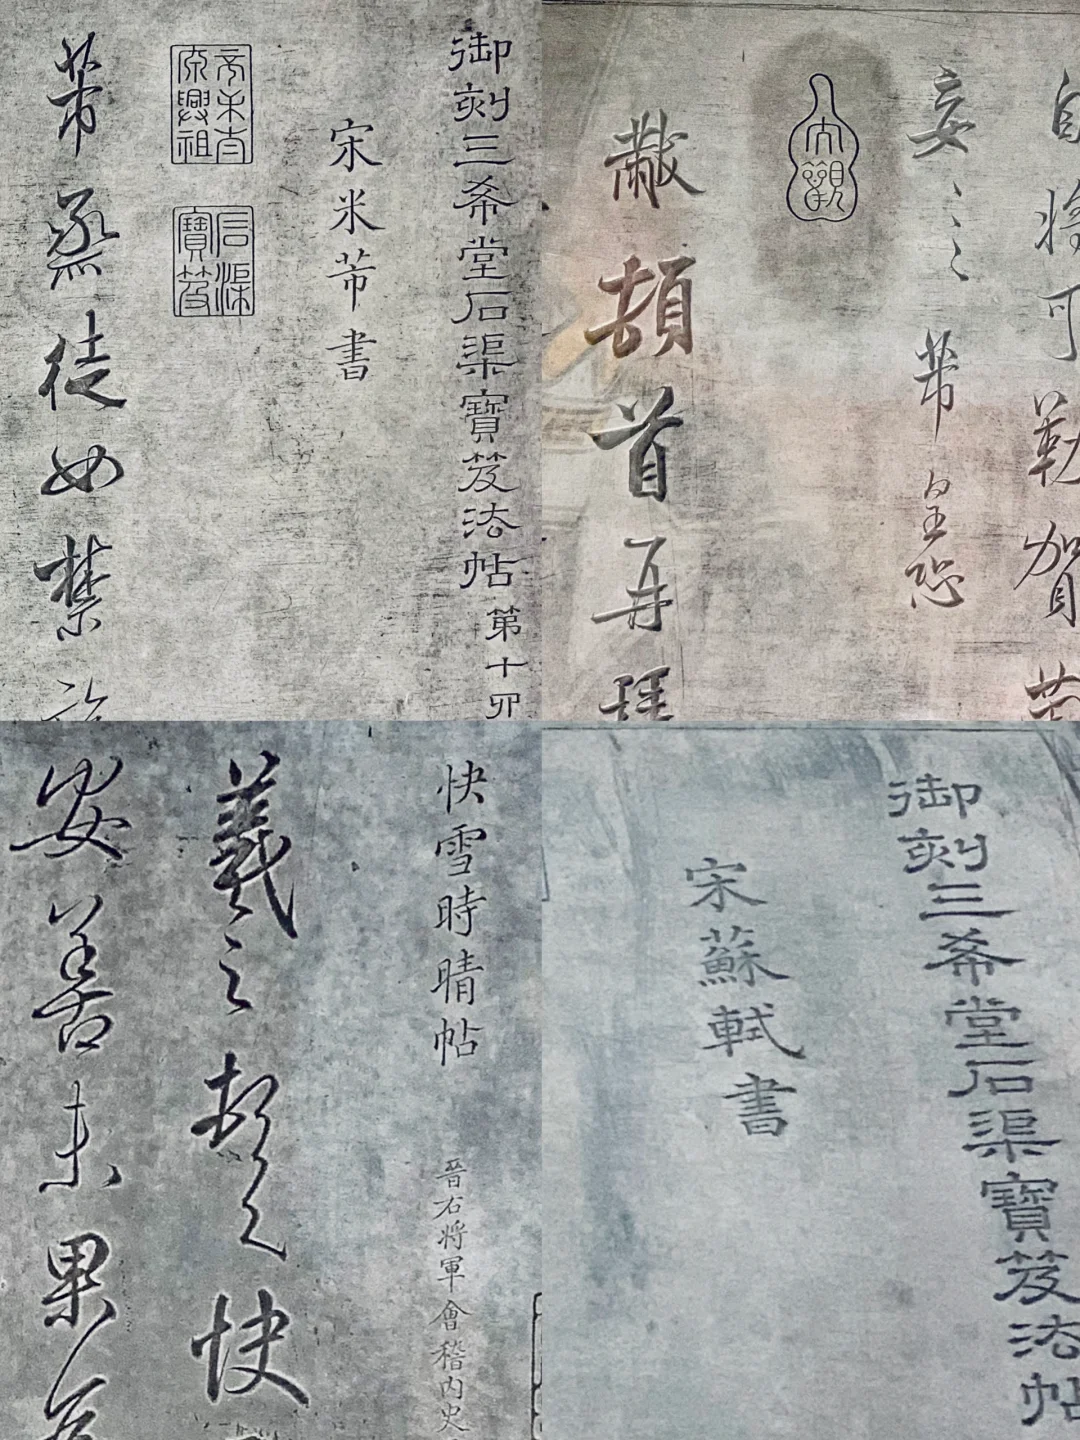 御刻三希堂石渠寶笈法帖 第十
宋米芾書
石渠寶笈
芾烝徒如禁
自將可勒賀
芾皇恐
黻頓首再拜
快雪時晴帖 晉右將軍會稽內史
羲之頓首快
安善未果為
御刻三希堂石渠寶笈法帖
宋蘇軾書